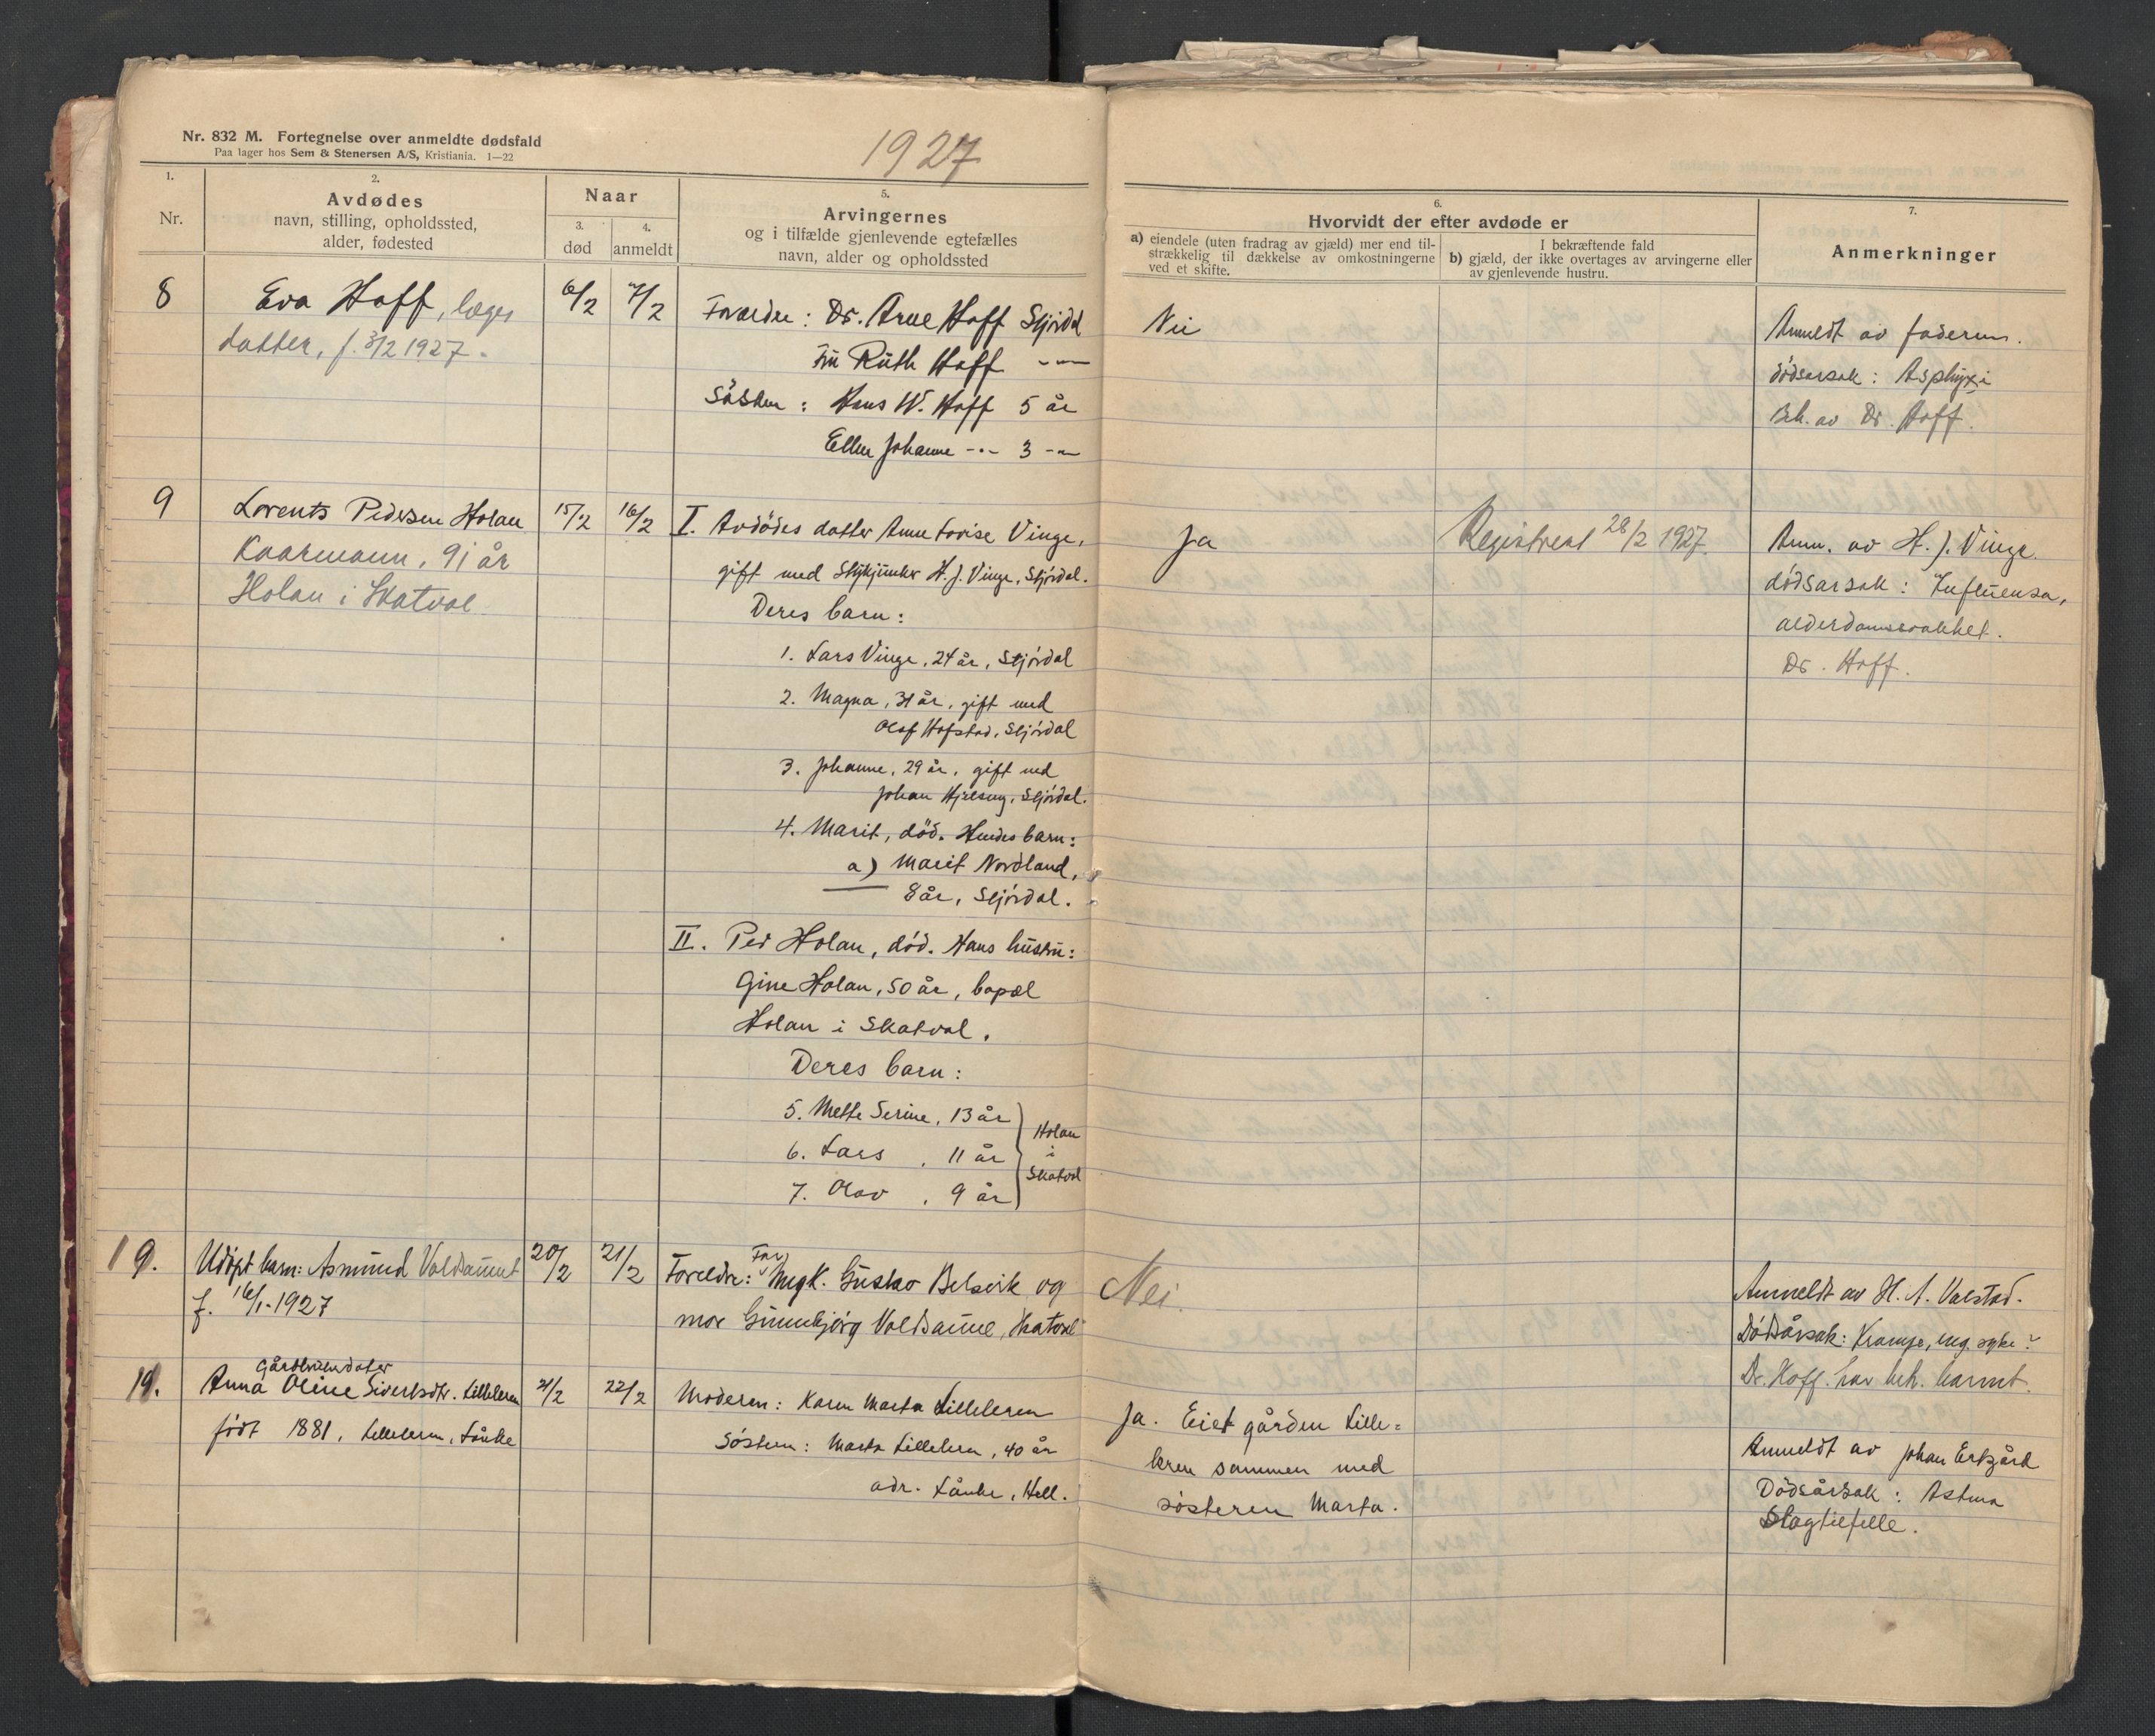 Nr. 832 M. Fortegnelse over anmeldte dødsfald
Paa lager hos Sem & Stenersen A/S, Kristiania. 1—22
1927
1.
Nr.
2.
Avdødes
navn, stilling, opholdssted,
alder, fødested
Naar
3.
død
4.
anmeldt
5.
Arvingernes
og i tilfælde gjenlevende egtefælles
navn, alder og opholdssted
6.
Hvorvidt der efter avdøde er
a) eiendele (uten fradrag av gjæld) mer end til-
strækkelig til dækkelse av omkostningerne
ved et skifte.
I bekræftende fald
b) gjæld, der ikke overtages av arvingerne eller
av gjenlevende hustru.
7.
Anmerkninger
8
Eva Hoff, læges
datter, f. 3/2 1927.
6/2
7/2
Foreldre: Dr. Arne Hoff Stjørdal
Fru Ruth Hoff -"-
Søsken: Hans W. Hoff 5 år
Ellen Johanne -"- 3 -"-
Nei
Anmeldt av faderen.
dødsarsak: Asphyxi
Beh. av Dr. Hoff.
9
Lorents Pedersen Holan
Kaarmann, 91 år
Holan i Skatval
15/2
16/2
I. Avdødes datter Anne Lovise Vinge,
gift med Stykjunker H. J. Vinge, Stjørdal.
Deres barn:
1. Lars Vinge, 24 år, Stjørdal
2. Magna, 31 år, gift med
Olaf Hofstad, Stjørdal
3. Johanne, 29 år, gift med
Johan Hjelseng, Stjørdal.
4. Marit, död. Hendes barn:
a) Marit Nordland,
8 år, Stjørdal.
II. Peder Holan, død. Hans hustru:
Gine Holan, 50 år, bopæl
Holan i Skatval.
Deres barn:
5. Mette Serine, 13 år
6. Lars, 11 år
7. Olav, 9 år
Holan
i
Skatval
Ja
Registrert 28/2 1927.
Anm. av H. J. Vinge.
dødsarsak: Influensa,
alderdomssvakhet.
Dr. Hoff.
19.
Udøpt barn: Asmund Valdaunet
f. 16/1-1927
20/2
21/2
Foreldre: Far Ungk. Gustav Belsvik og
mor Gunnbjørg Valdaune, Skatval
Nei.
Anmeldt av H. A. Valstad.
Dødsårsak: Krampe, eng. syke?
Dr. Hoff. har beh. barnet.
11.
Gårdbrukerdatter
Anna Oline Sivertsdtr. Lilleleren
født 1881, Lilleleren, Lånke
21/2
22/2
Moderen: Karen Marta Lilleleren
Søsteren: Marta Lilleleren, 40 år
adr. Lånke, Hell.
Ja. Eiet gården Lille-
leren sammen med
søsteren Marta.
Anmeldt av Johan Ertzgård
Dødsårsak: Astma
Slagtilfelle.